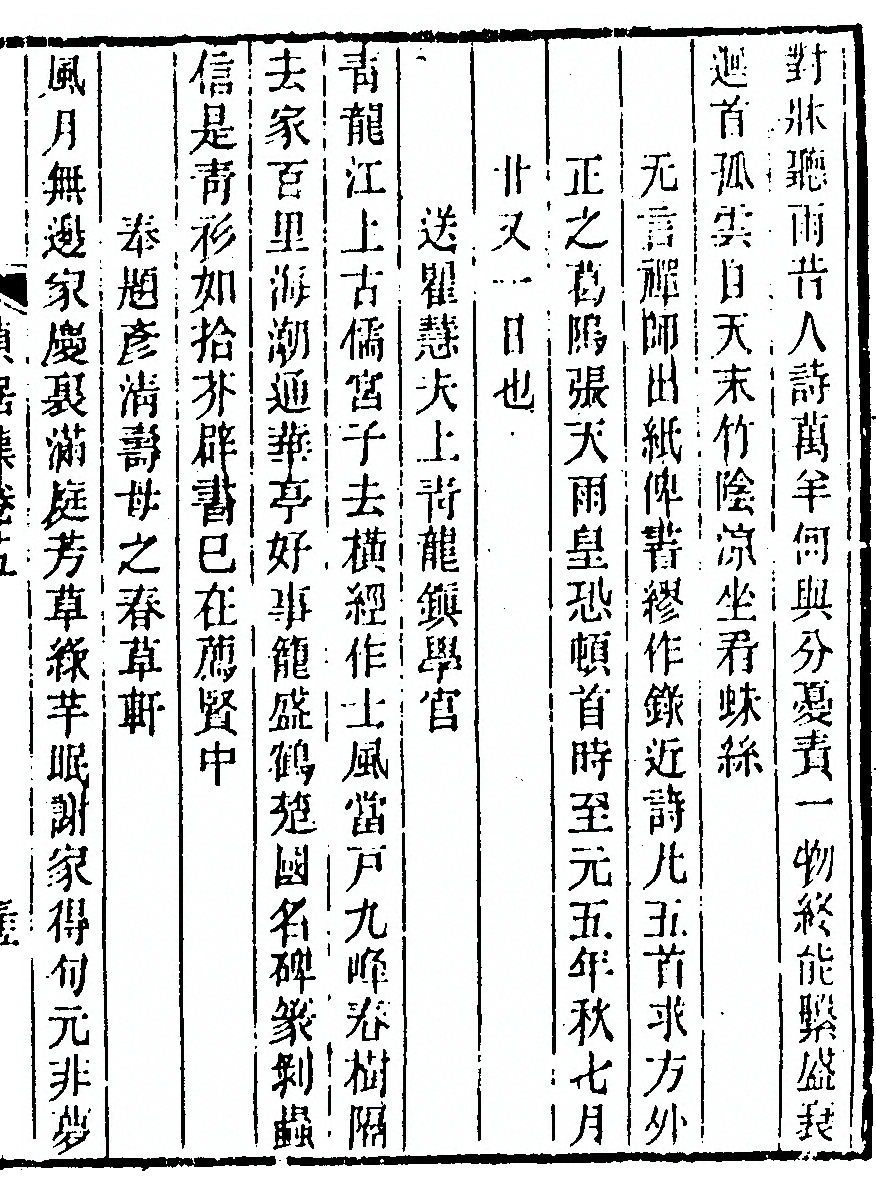 對牀聽雨昔人詩萬羊何與分憂責一物終能繫盛衰
迴首孤雲日天末竹陰涼坐看蛛絲
无言禪師出紙俾書繆作錄近詩凡五首求方外
正之葛陽張天雨皇恐頓首時至元五年秋七月
廿又一日也
送瞿慧夫上青龍鎮學官
青龍江上古儒宮子去橫經作士風當戶九峰春樹隔
去家百里海潮通華亭好事籠盛鶴兖國名碑篆剝蟲
信是青衫如拾芥辟書已在薦賢中
奉題彥清壽母之春草軒
風月無邊家慶裏滿庭芳草綠芊眠謝家得句元非夢
貞居集卷五